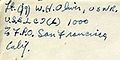 Lt. (jg) W. H. Olvin, USNR,
USS LCI(L) 1000
% F.P.O., San Francisco
Calif.